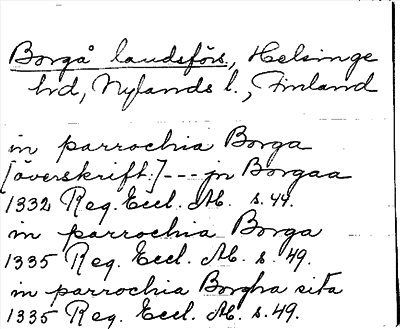 Borgå landsförs., Helsinge
hd, Nylands l., Finland
in parrochia Borga
[överskrift:] --- jn Borgaa
1332 Reg. Eccl. Ab. s. 44.
in parrochia Borga
1335 Reg. Eccl. Ab. s. 49.
in parrochia Borgha sita
1335 Reg. Eccl. Ab. s. 49.